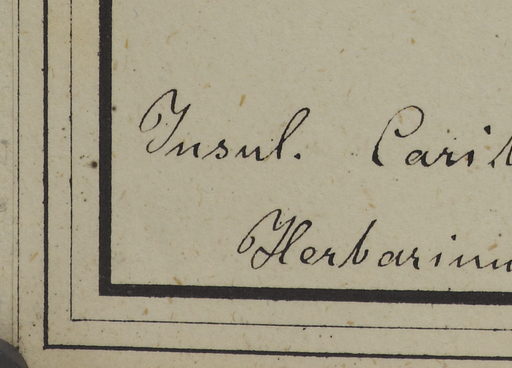 Insul. Carib
Herbarium